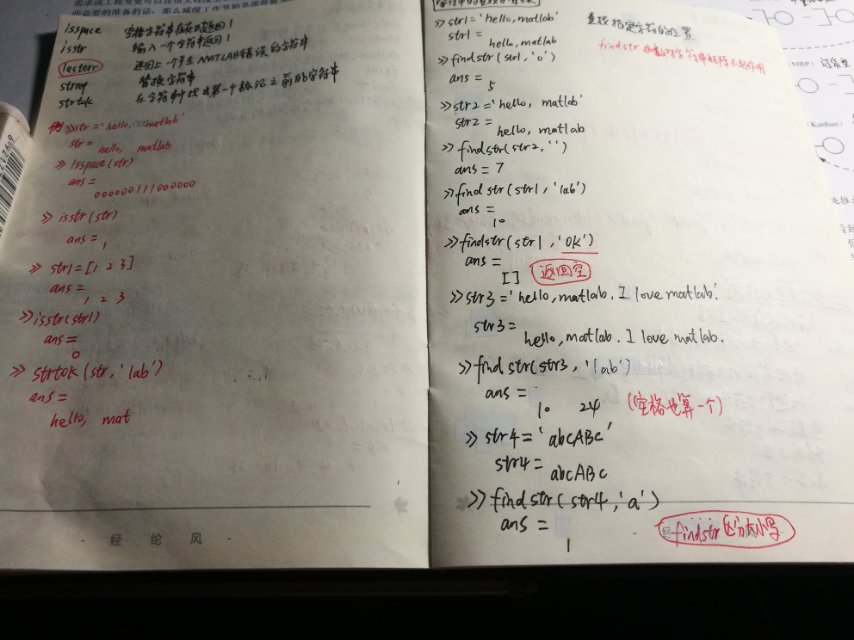 isspace 空格字符串存在返回1
isstr 输入一个字符返回1
lasterr 返回上一个产生MATLAB错误的字符串
strrep 替换字符串
strtok 在字符中找出第一个标记之前的字符串
例 >>str='hello, matlab'
str=
hello, matlab
>> isspace(str)
ans=
0000001110000000
>> isstr(str)
ans=
1
>> str1=[1 2 3]
ans=
1 2 3
>>isstr(str1)
ans=
0
>> strtok(str,'lab')
ans=
hello, mat
- 经 纶 风 -
>> str1='hello,matlab' 查找指定字符的位置
str1=
hello,matlab
findstr 函数对字符串矩阵不起作用
>>findstr(str1,'o')
ans=
5
>>str2='hello, matlab'
str2=
hello, matlab
>>findstr(str2,' ')
ans=7
>>findstr(str1,'lab')
ans=
10
>>findstr(str1,'OK')
ans=
[] 返回空
>>str3='hello,matlab. I love matlab'.
str3=
hello,matlab. I love matlab.
>>findstr(str3,'lab')
ans=
10 24 (空格也算一个)
>>str4='abcABc'
str4=
abcABc
>>findstr(str4,'a')
ans=
1
findstr区分大小写